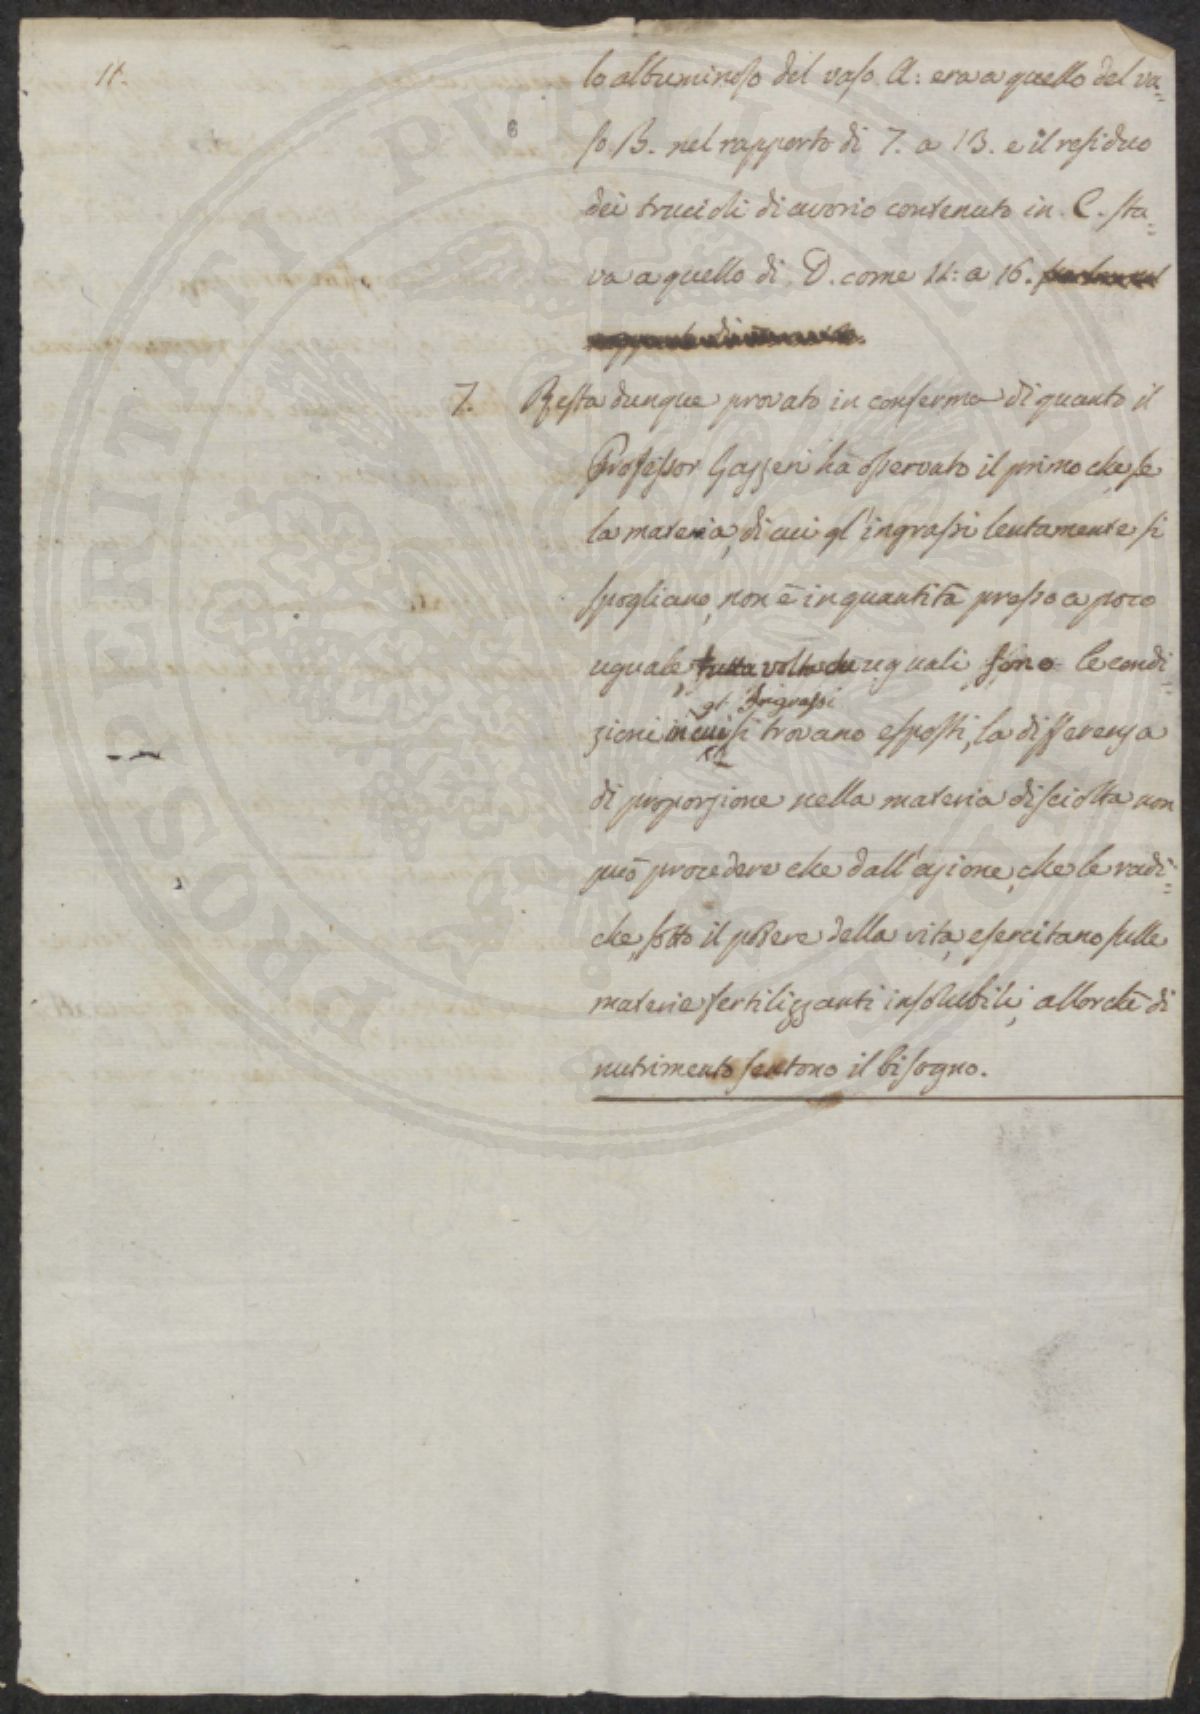 11.
6
lo albuminoso del vaso A: era a quello del va=
so B. nel rapporto di 7. a 13. e il residuo
dei trucioli di avorio contenuto in C. sta=
va a quello di D. come 11: a 16.
7. Resta dunque provato in conferma di quanto il
Professor Gazzeri ha osservato il primo che se
la materia, di cui gl'ingrassi lentamente si
spogliano, non è in quantità presso a poco
uguale tutta volta che uguali sono le condi=
gl' Ingrassi
zioni in cui si trovano esposti, la differenza
di proporzione nella materia disciolta non
può procedere che dall'azione, che le radi=
che, sotto il potere della vita, esercitano sulle
materie fertilizzanti insolubili, allorchè di
nutrimento sentono il bisogno.
PROSPERITATI PUBLICAE AU